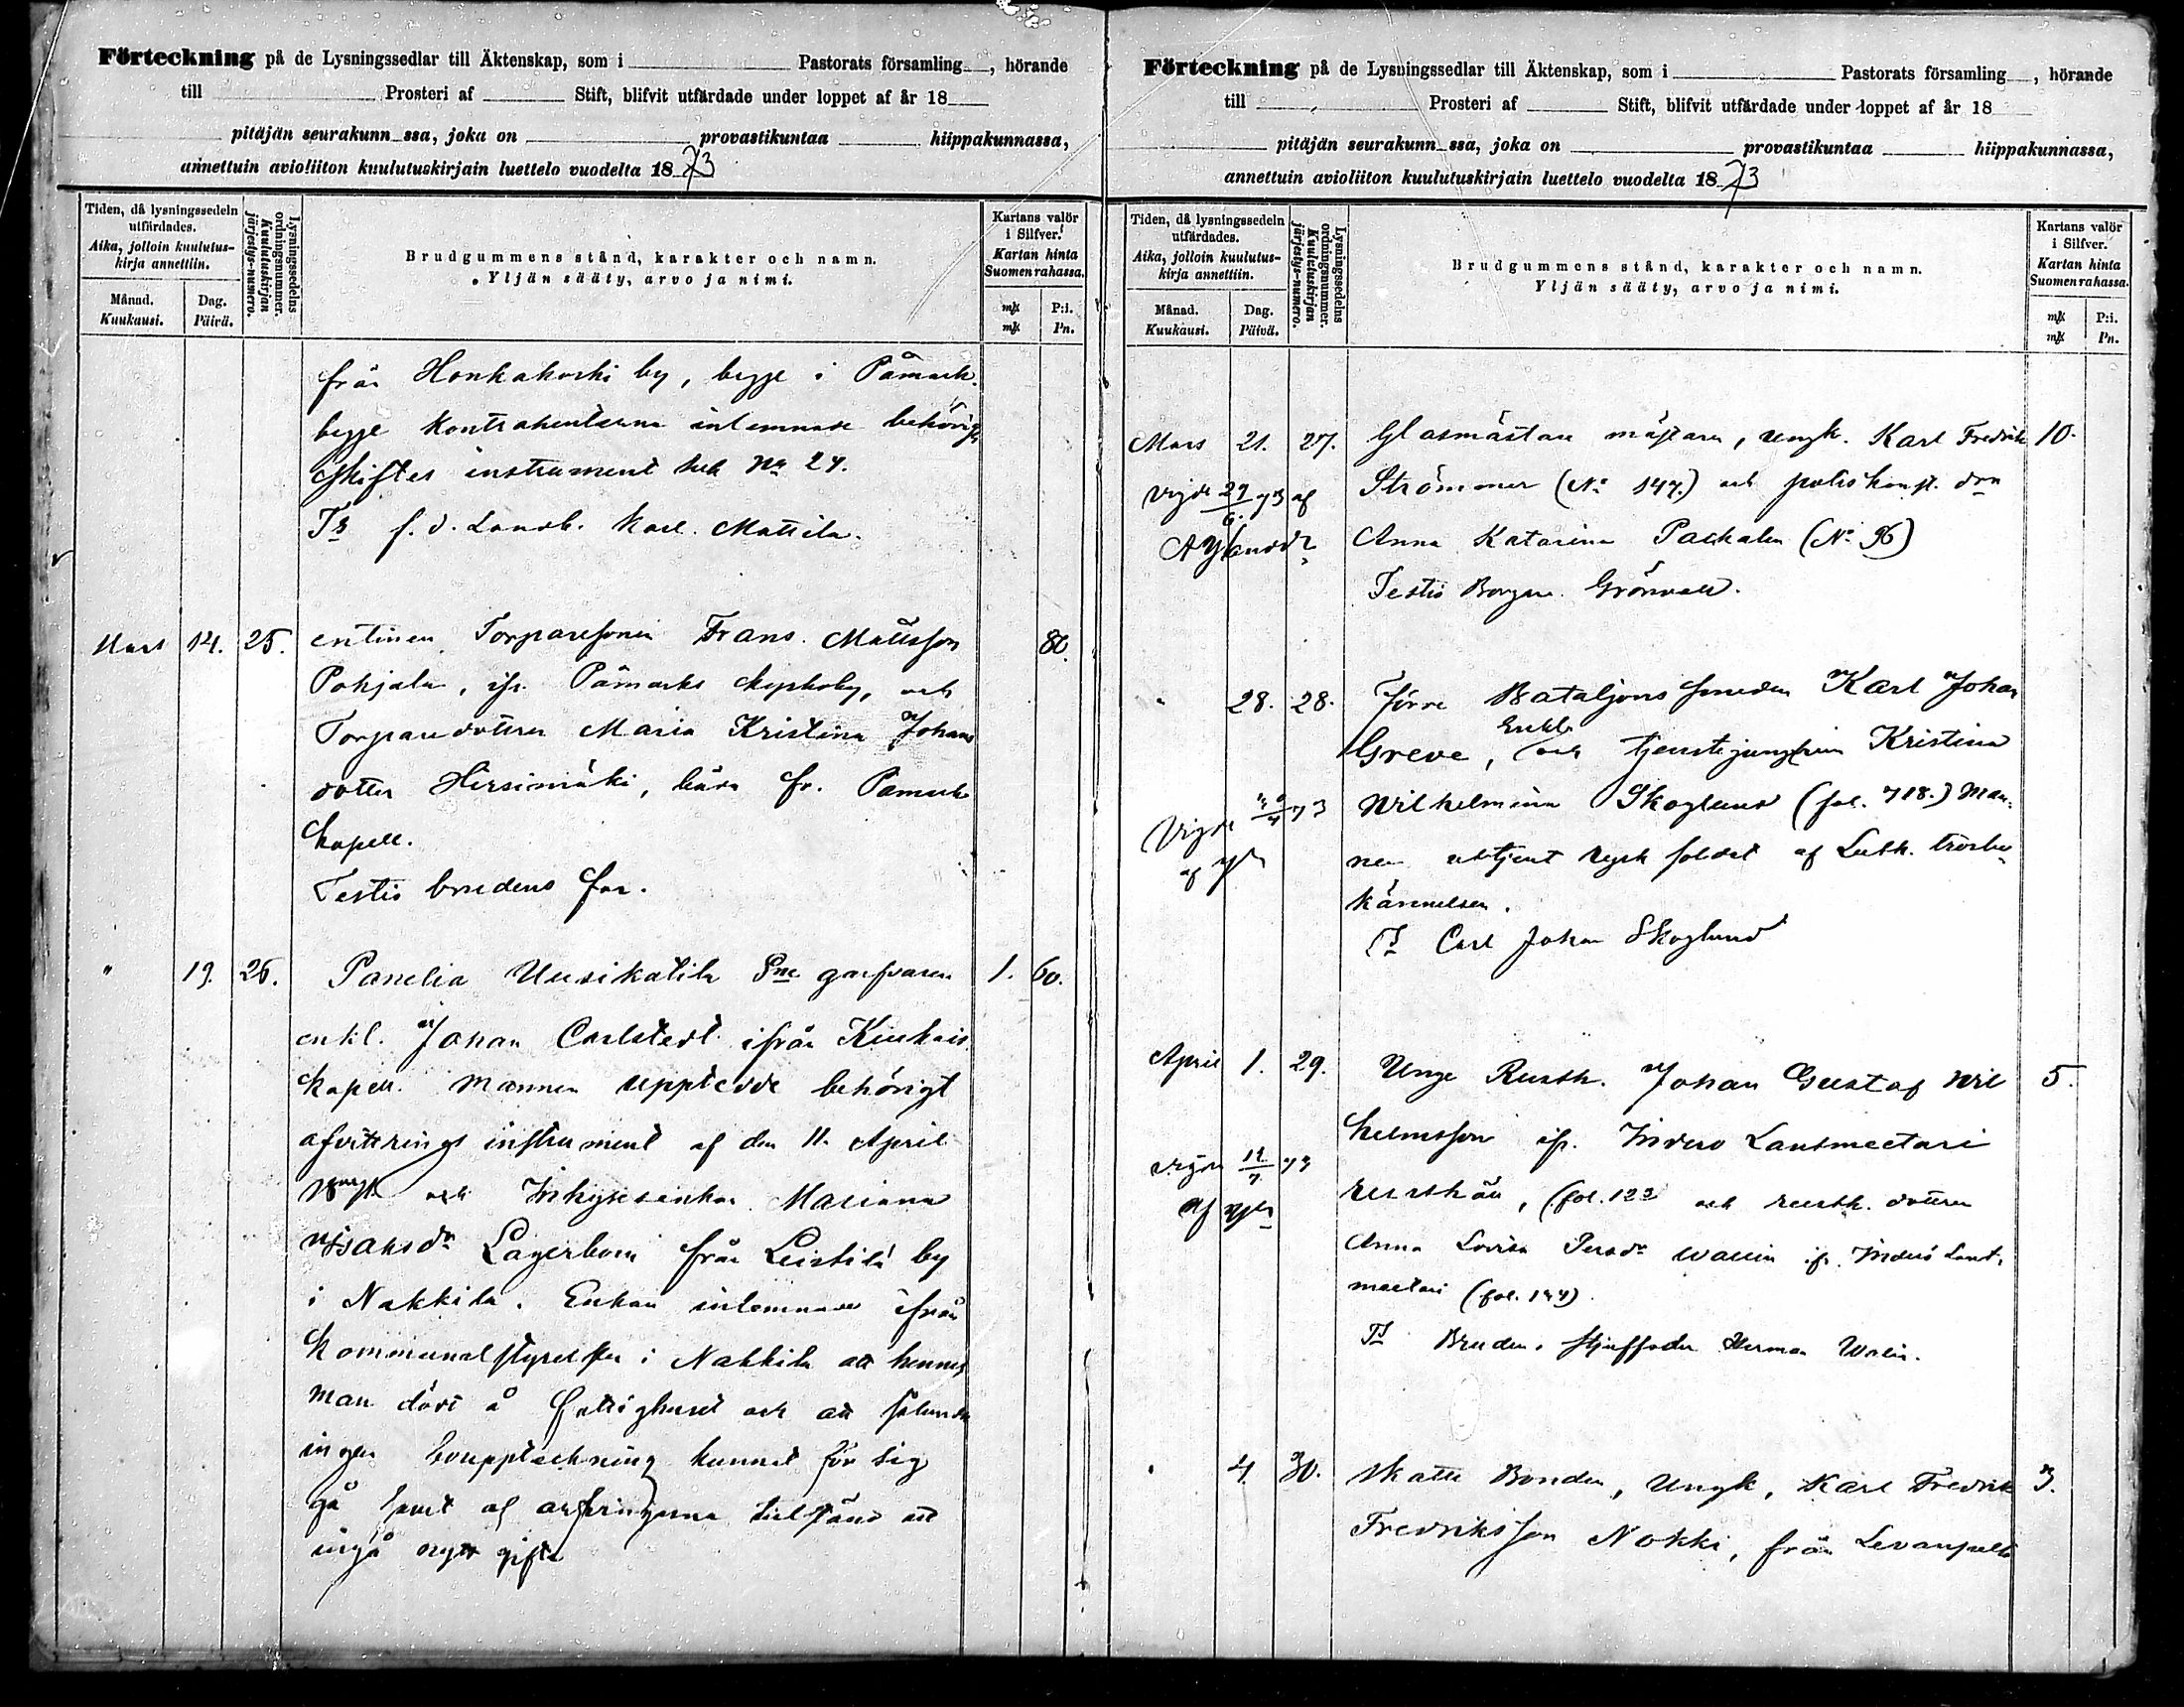 Förteckning på de Lysningssedlar till Äktenskap, som i Pastorats församling, hörande
till Prosteri af Stift, blifvit utfärdade under loppet af år 18
pitäjän seurakunn ssa, joka on provastikuntaa hiippakunnassa,
annettuin avioliiton kuulutuskirjain luettelo vuodelta 1873
Tiden, då lysningssedeln utfärdades.
Aika, jolloin kuulutus-kirja annettiin.
Månad. Kuukausi.
Dag. Päivä.
Lysningssedelns ordningsnummer.
Kuulutuskirjan järjestys-numero.
Brudgummens stånd, karakter och namn.
Yljän sääty, arvo ja nimi.
Kartans valör i Silfver.
Kartan hinta Suomen rahassa.
mk P:i.
mk Pn.
från Honkakoski by, begge i Påmark.
begge Kontrahenterna inlemnade behörigt
skiftes instrument No 24.
Ts f.d. Landb. Karl Mattila.
Mars 14. 25. entinen Torparesonen Frans Mattsson 80.
Pohjala, ifr. Påmarks kyrkoby, och
Torparedottren Maria Kristina Johans
dotter Hirsimäki, båda fr. Påmark
kapell.
Testis brudens far.
" 19. 26. Panelia Uusikatila garfvaren 1. 60.
enkl. Johan Carlstedt ifrån Kiukais
kapell. Mannen upptedde behörigt
afvittrings instrument af den 11. April
och Inhyseenkan Mariana
Isaksdr Lagerbom från Leistilä by
i Nakkila. Enkan inlemnade ifrån
kommunalstyrelsen i Nakkila att hennes
man dött å fattighuset och att sålunda
ingen bouppteckning kunnat för sig
gå samt af arfvingarna tillstånd att
ingå nytt gifte
Förteckning på de Lysningssedlar till Äktenskap, som i Pastorats församling, hörande
till Prosteri af Stift, blifvit utfärdade under loppet af år 18
pitäjän seurakunn ssa, joka on provastikuntaa hiippakunnassa,
annettuin avioliiton kuulutuskirjain luettelo vuodelta 1873
Tiden, då lysningssedeln utfärdades.
Aika, jolloin kuulutus-kirja annettiin.
Månad. Kuukausi.
Dag. Päivä.
Lysningssedelns ordningsnummer.
Kuulutuskirjan järjestys-numero.
Brudgummens stånd, karakter och namn.
Yljän sääty, arvo ja nimi.
Kartans valör i Silfver.
Kartan hinta Suomen rahassa.
mk P:i.
mk Pn.
Mars 21. 27. Glasmästare mästaren, ungk. Karl Fredrik 10.
Vigde 29/6 73 af Strömmer (No 147.) och poliskonst. drn
Anna Katarina Packalen (No 96)
Testis Borgare Grönvall.
" 28. 28. Förre Bataljons smeden Karl Johan
Greve, Enkl. och tjenstejungfrun Kristina
Vigde 73 Wilhelmina Skoglund (fol. 718.) Man-
nen uttjent rysk soldat af Luth. trosbe-
kännelsen.
Ts Carl Johan Skoglund
April 1. 29. Unge Rusth. Johan Gustaf Wil 5.
helmsson ifr. Inderö Lantmectari
Vigde 73 rusthåll, (fol. 122 och rusth. dottren
Anna Lovisa Persdr Wallin ifr. Inderö Lant-
mectari (fol. 144).
Ts Brudens styffader Herman Walin.
" 4. 30. Skatte Bonden, Ungk, Karl Fredrik 3.
Fredriksson Nokki, från Levanpelto